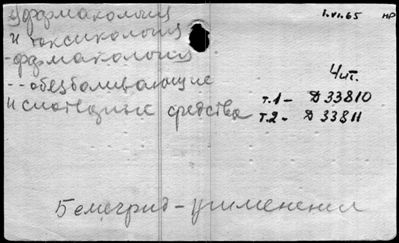 фармакология 1.VI.65 нр
и токсикология
-фармакология
--обезболивающие Чит.
и снотворные средства т.1- Д 33810
т.2- Д 33811
Бемегрид - применения